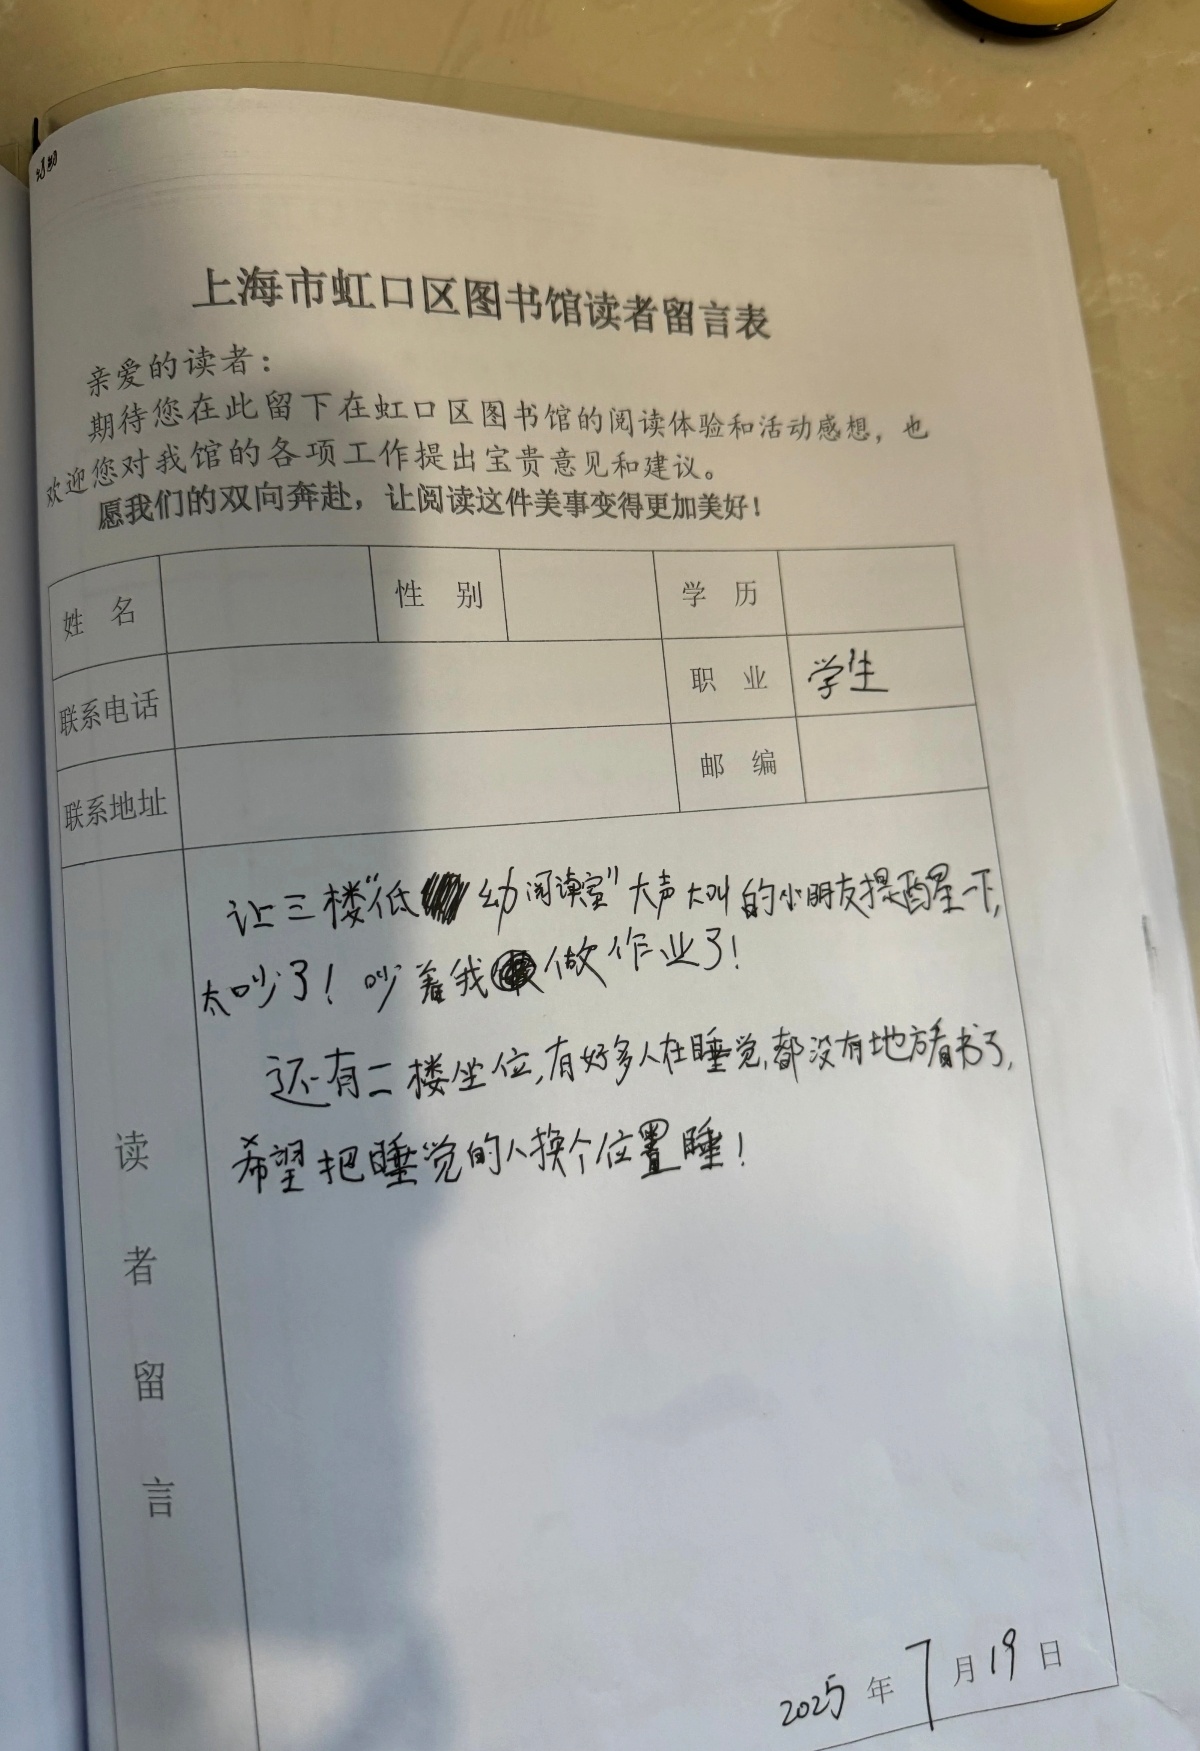 上海市虹口区图书馆读者留言表
亲爱的读者：
期待您在此留下在虹口区图书馆的阅读体验和活动感想，也
欢迎您对我馆的各项工作提出宝贵意见和建议。
愿我们的双向奔赴，让阅读这件美事变得更加美好！
姓 名 性 别 学 历
联系电话 职 业 学生
联系地址 邮 编
读者留言
让三楼“低幼阅读室”大声大叫的小朋友提醒一下，
太吵了！吵着我做作业了！
还有二楼坐位，有好多人在睡觉，都没有地方看书了，
希望把睡觉的人换个位置睡！
2025 年 7 月 19 日